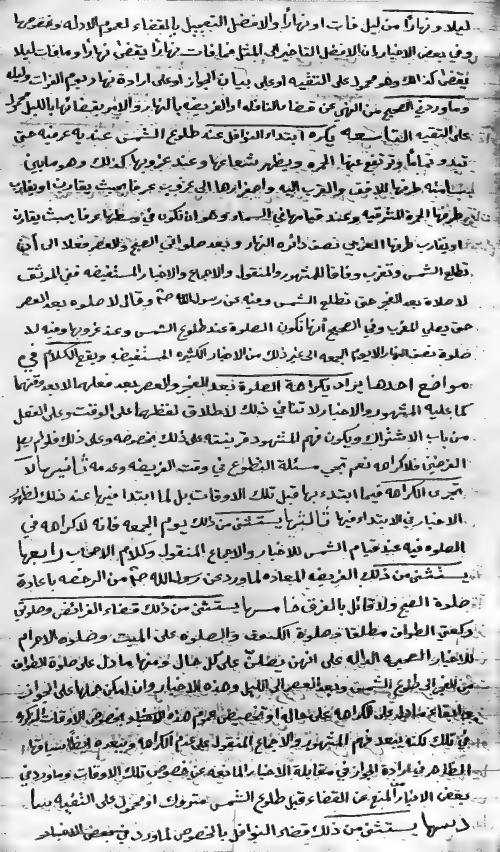 ليلا ونهارا من ليل فات او نهارا والافضل التعجيل بالقضاء لعموم الادلة وخصوصها
وفي بعض الاخبار ان الافضل التاخير الى المثل فما فات نهارا يقضى نهارا وما فات ليلا
يقضى كذلك وهو محمول على التقيه او على بيان الجواز او على ارادة
وما ورد في الصحيح من النهي عن قضاء النافلة او الفريضه بالنهار والامر بقضائها بالليل محمول
على التقيه التاسعه يكره ابتداء النوافل عند طلوع الشمس عنديه عرفيه حتى
تبدو تماما وترتفع عنها الحمره ويظهر شعاعها وعند غروبها كذلك وهو ما بين
طرفها للافق والقرب اليه واصفرارها الى غروب عرفا بحيث يقارب او يقارب
طرفها الحمرة المشرقيه وعند قيامها في السماء وهو ان تكون في وسطها عرفا بحيث يقارن
او يقارب طرفها الغربي نصف دائره النهار وبعد صلواتي الصبح والعصر فعلا الى ان
تطلع الشمس وتغرب وفاقا للمشهور والمنقول والاجماع والاخبار المستفيضه ففي الموثق
لا صلاة بعد الفجر حتى تطلع الشمس وفيه عن رسول الله وقال لا صلوه بعد العصر
حتى يصلي المغرب وفي الصحيح انما تكون الصلوة عند طلوع الشمس وعند غروبها وفيه لا
صلوة نصف النهار الا يوم الجمعه الى غير ذلك من الاخبار الكثيره المستفيضه ويقع الكلام في
مواضع احدها يراد بكراهة الصلوة بعد الفجر والعصر بعد فعلهما لا بعد وقتهما
كما عليه المشهور والاخبار لا تنافي ذلك لاطلاق لفظهما على الوقت وعلى الفعل
من باب الاشتراك ويكون فهم المشهور قرينه على ذلك بخصوصه وعلى ذلك فلو لم يصل
الفرضين فلا كراهه نعم تجي مسئلة التطوع في وقت الفريضه وعدمه ثانيها لا
تجري الكراهه فيما ابتدء بها قبل تلك الاوقات بل لما ابتدا فيها عند ذلك لظهور
الاخبار في الابتداء فيها ثالثها يستثنى من ذلك يوم الجمعه فانه لا كراهه في
الصلوه فيه عند قيام الشمس للاخبار والاجماع المنقول وكلام الاصحاب رابعها
يستثنى من ذلك الفريضه المعاده لما ورد عن رسول الله من الرخصه باعادة
صلوة الصبح ولا قائل بالفرق خامسها يستثنى من ذلك قضاء الفرائض وصلوتي
وركعتي الطواف مطلقا وصلوة الكسوف والصلوه على الميت وصلوه الاحرام
للاخبار الصحيحه الداله على انهن يصلين على كل حال ومنها ما دل على صلوة الطواف
من الفجر الى طلوع الشمس وبعد العصر الى الليل وهذه الاخبار وان امكن حملها على الجواز
على الكراهه على حاله او تخصيص عموم هذه الاخبار بخصوص الاوقات المكروهه
في تلك لكنه يبعد فهم المشهور والاجماع المنقول على عدم الكراهه ويبعده ايضا سياقها
الظاهر في ارادة الجواز في مقابلة الاخبار المانعه عن خصوص تلك الاوقات وما ورد في
بعض الاخبار من المنع عن القضاء قبل طلوع الشمس متروك او محمول على التقيه
سادسها يستثنى من ذلك قضاء النوافل بالخصوص لما ورد في بعض الاخبار